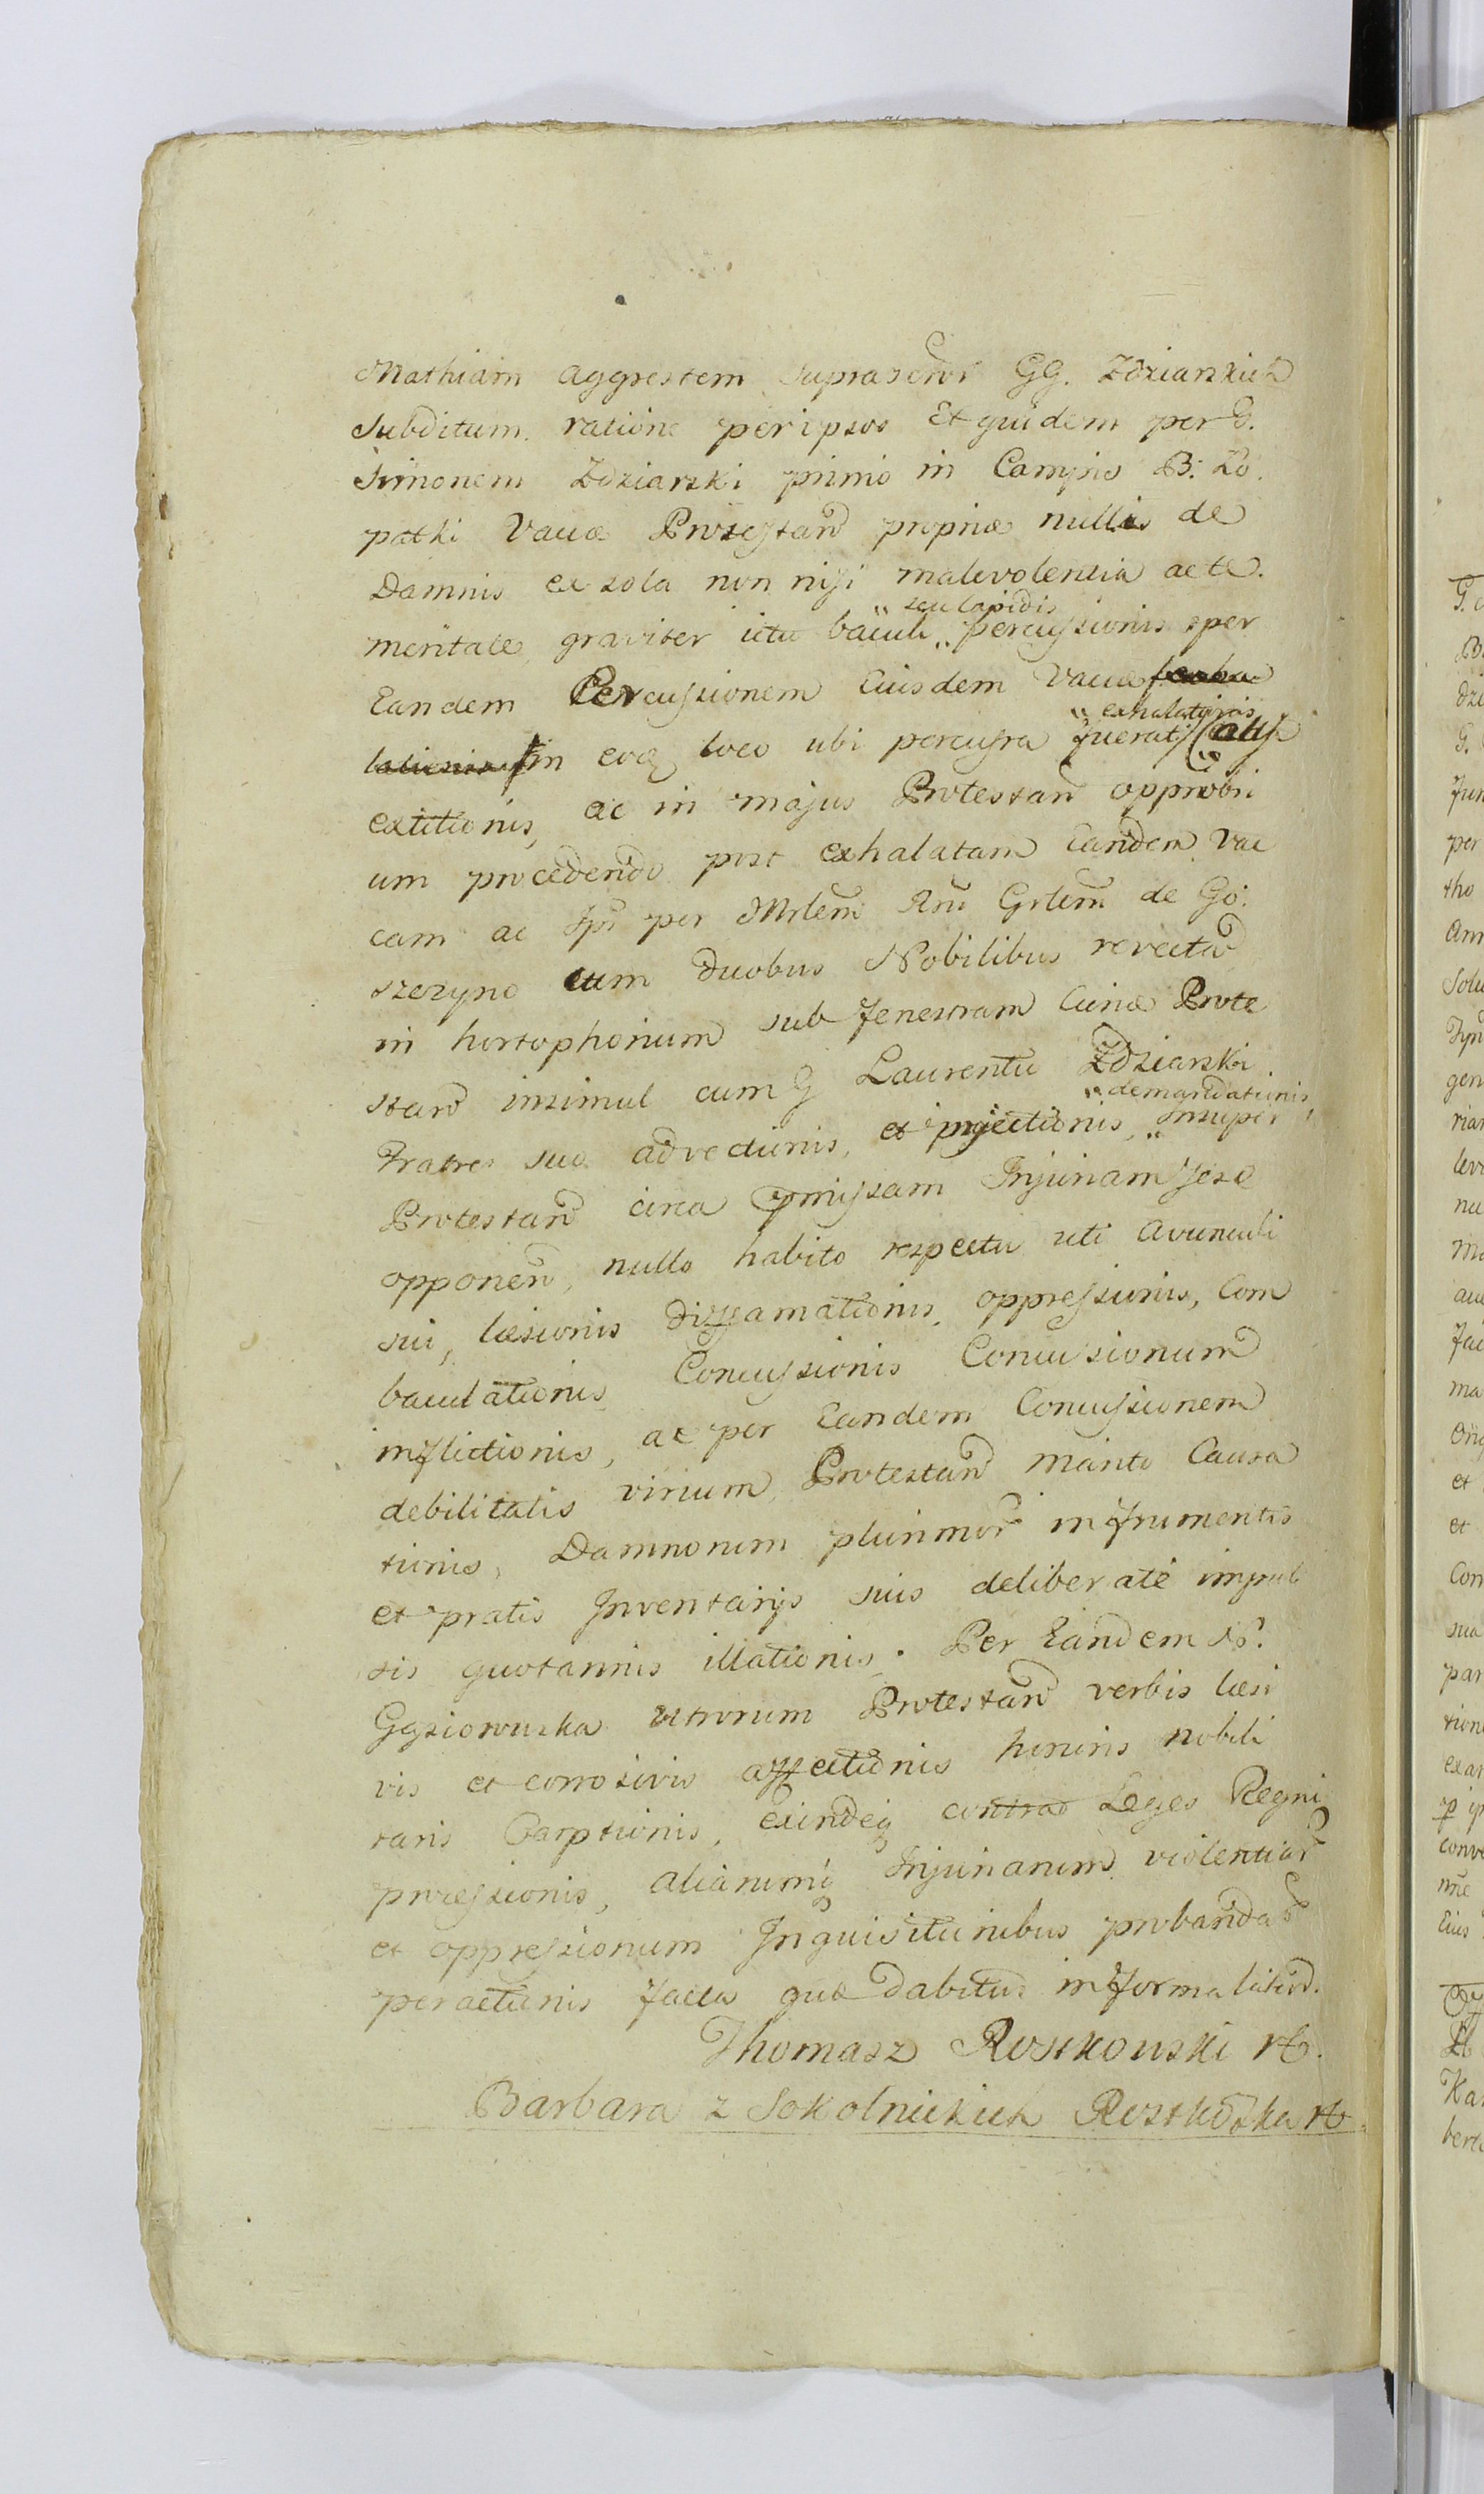 Mathiam aggrestem suprascrōr GG. Zdziarskich
Subditum. ratione per ipsos Et quidem per G.
Simonem Zdziarski primo in Campis B: Ło.
patki Vacca Protestan̄ propriæ nullis de
Damnis ex sola non nisi malevolentia ac te.
meritate, graviter ictu baculi „ seu lapidis „ percussionis per
Eandem Percussionem Eiusdem Vacca
in eoq loco ubi percussa fuerat „ exhalationis
extitionis, ac in majus Protestan̄ opprobri
um procedendo post exhalatam Eandem Vac
cam ac per Mrlem̄ Grlem̄ de Go.
szczyno cum duobus Nobilibus
in hortophorium sub fenestram Curiæ Prote
stan̄ insimul cum G Laurentio Zdziarski
Fratre suo advectionis, et injectionis, „ demandationis, „ Insuper
Protestan̄ circa pmissam Injuriam sese
opponen̄, nullo habito respectu uti Avunculi
sui, læsionis diffamationis, oppressionis, Com
baculationis Concussionis Concussionum
inflictionis, ac per Eandem Concussionem
debilitatis virium Protestan̄ Manto Causa
tionis, Damnorum plurimor in frumentis
et pratis Inventarijs suis deliberatè impul
sis quotannis illationis. Per Eandem N.
Gąsiorowska utrorum Protestan̄ verbis læsi
vis et corrosivis affectionis honoris nobili
taris Carptionis, exindeq contra Leges Regni
processionis, aliarumq Injuriarum violentiar
et oppressionum Inquisitionibus probanda
peractionis facta quæ dabitur in forma
Thomasz Rostkowski
Barbara z Sokolnickich Rostkowska